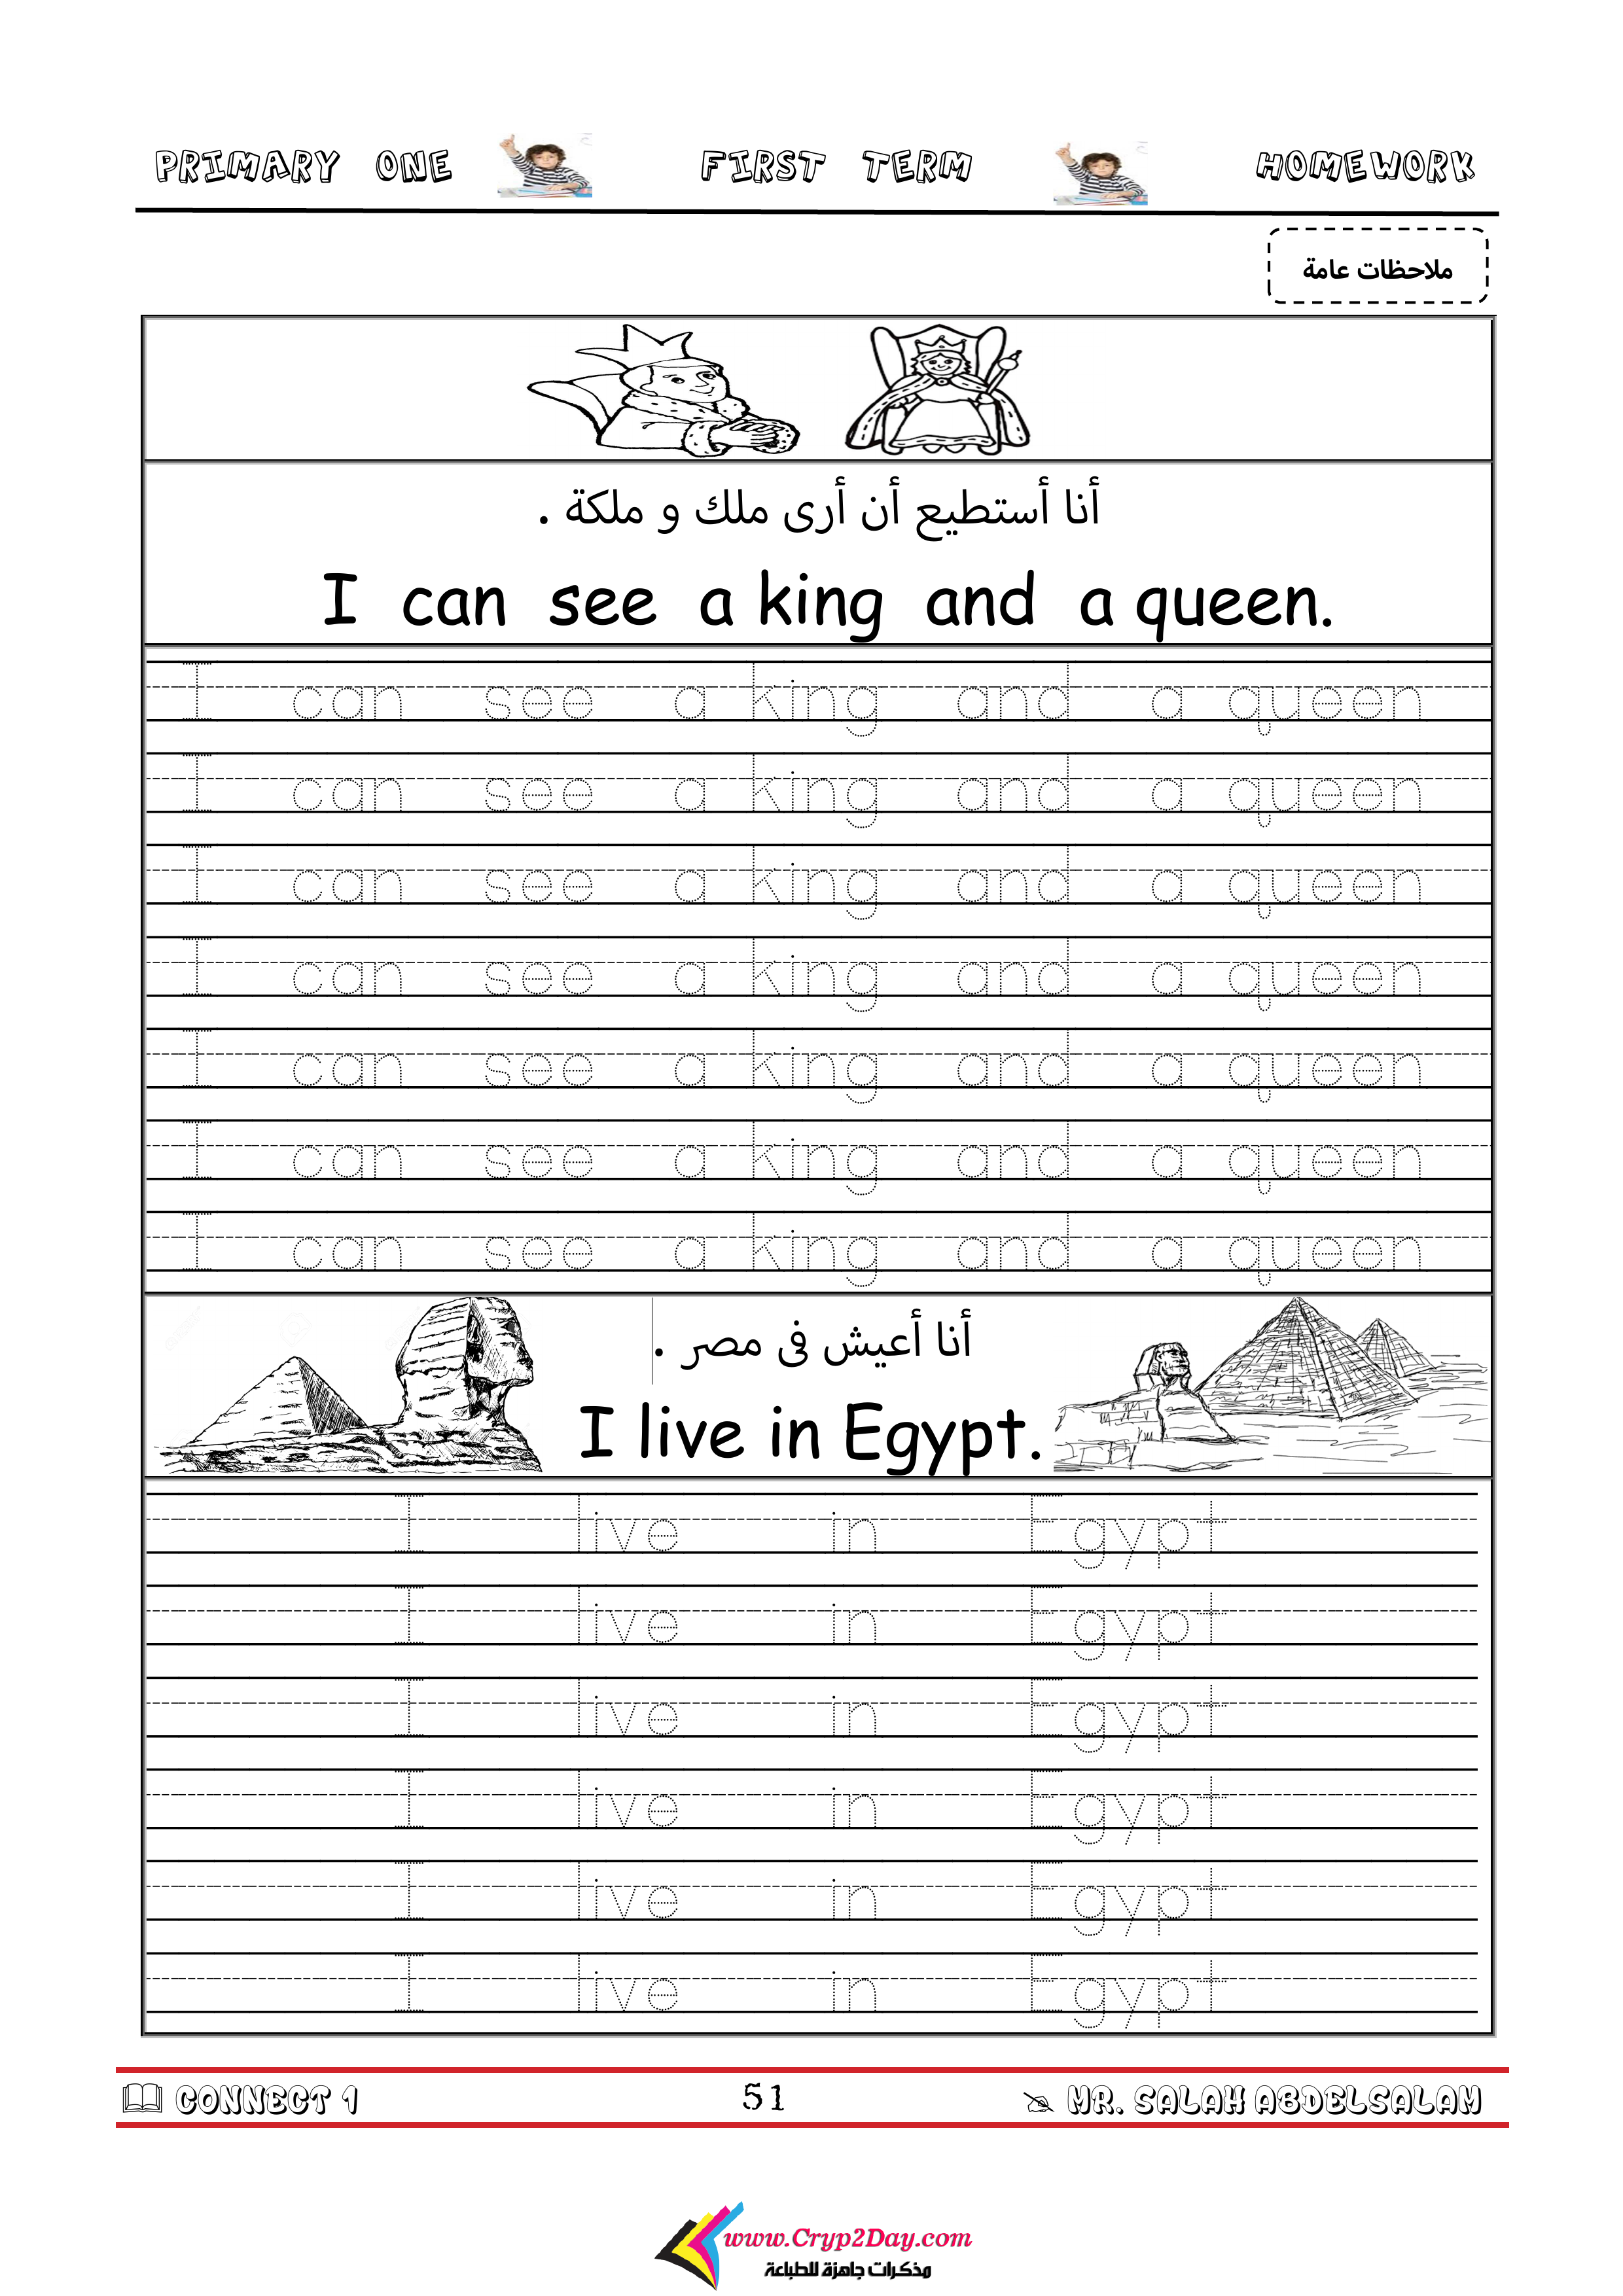 PRIMARY ONE FIRST TERM HOMEWORK
ملاحظات عامة
أنا أستطيع أن أرى ملك و ملكة .
I can see a king and a queen.
I can see a king and a queen
I can see a king and a queen
I can see a king and a queen
I can see a king and a queen
I can see a king and a queen
I can see a king and a queen
I can see a king and a queen
أنا أعيش فى مصر .
I live in Egypt.
I live in Egypt
I live in Egypt
I live in Egypt
I live in Egypt
I live in Egypt
I live in Egypt
CONNECT 1 51 MR. SALAH ABDELSALAM
www.Cryp2Day.com
مذكرات جاهزة للطباعة